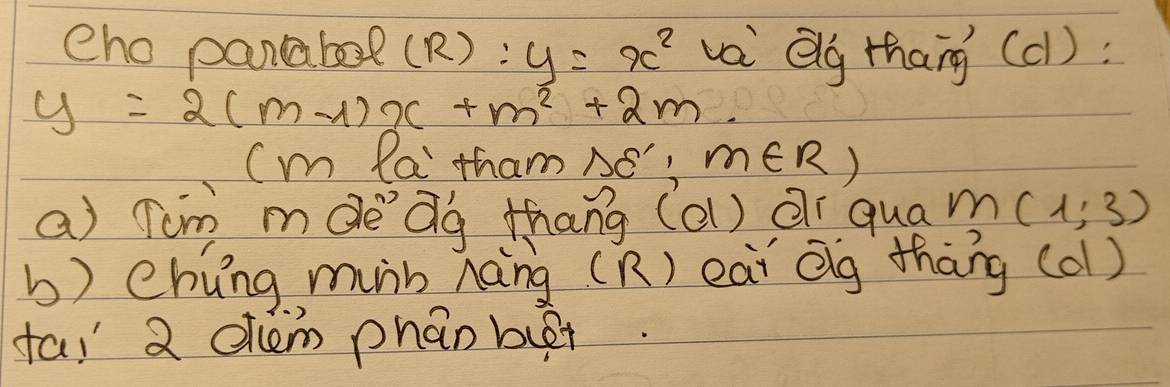 Cho parabol (R) : y = x² và đg thẳng (d) :
y = 2(m-1)x + m² + 2m.
(m là tham số, m∈R)
a) Tìm m để đg thẳng (d) đi qua M(1;3)
b) Chứng minh rằng (R) cắt đg thẳng (d)
tại 2 điểm phân biệt .